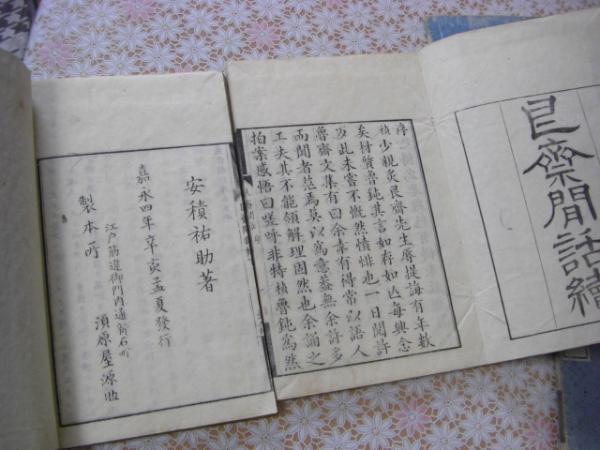 艮齋閒話續
序
楨少親炙艮齋先生辱提誨有年數
矣材質魯鈍其言如存如亡每興念
及此未嘗不慨然憤悱也一日閲許
魯齋文集有曰余幸有得常以語人
而聞者茫焉莫以爲意蓋無余許多
工夫其不能領解理固然也余誦之
拍案感悟曰嗟呼非特楨魯鈍爲然
安積祐助著
嘉永四年辛亥孟夏發行
江戸筋違御門内通新石町
製本所 須原屋源助